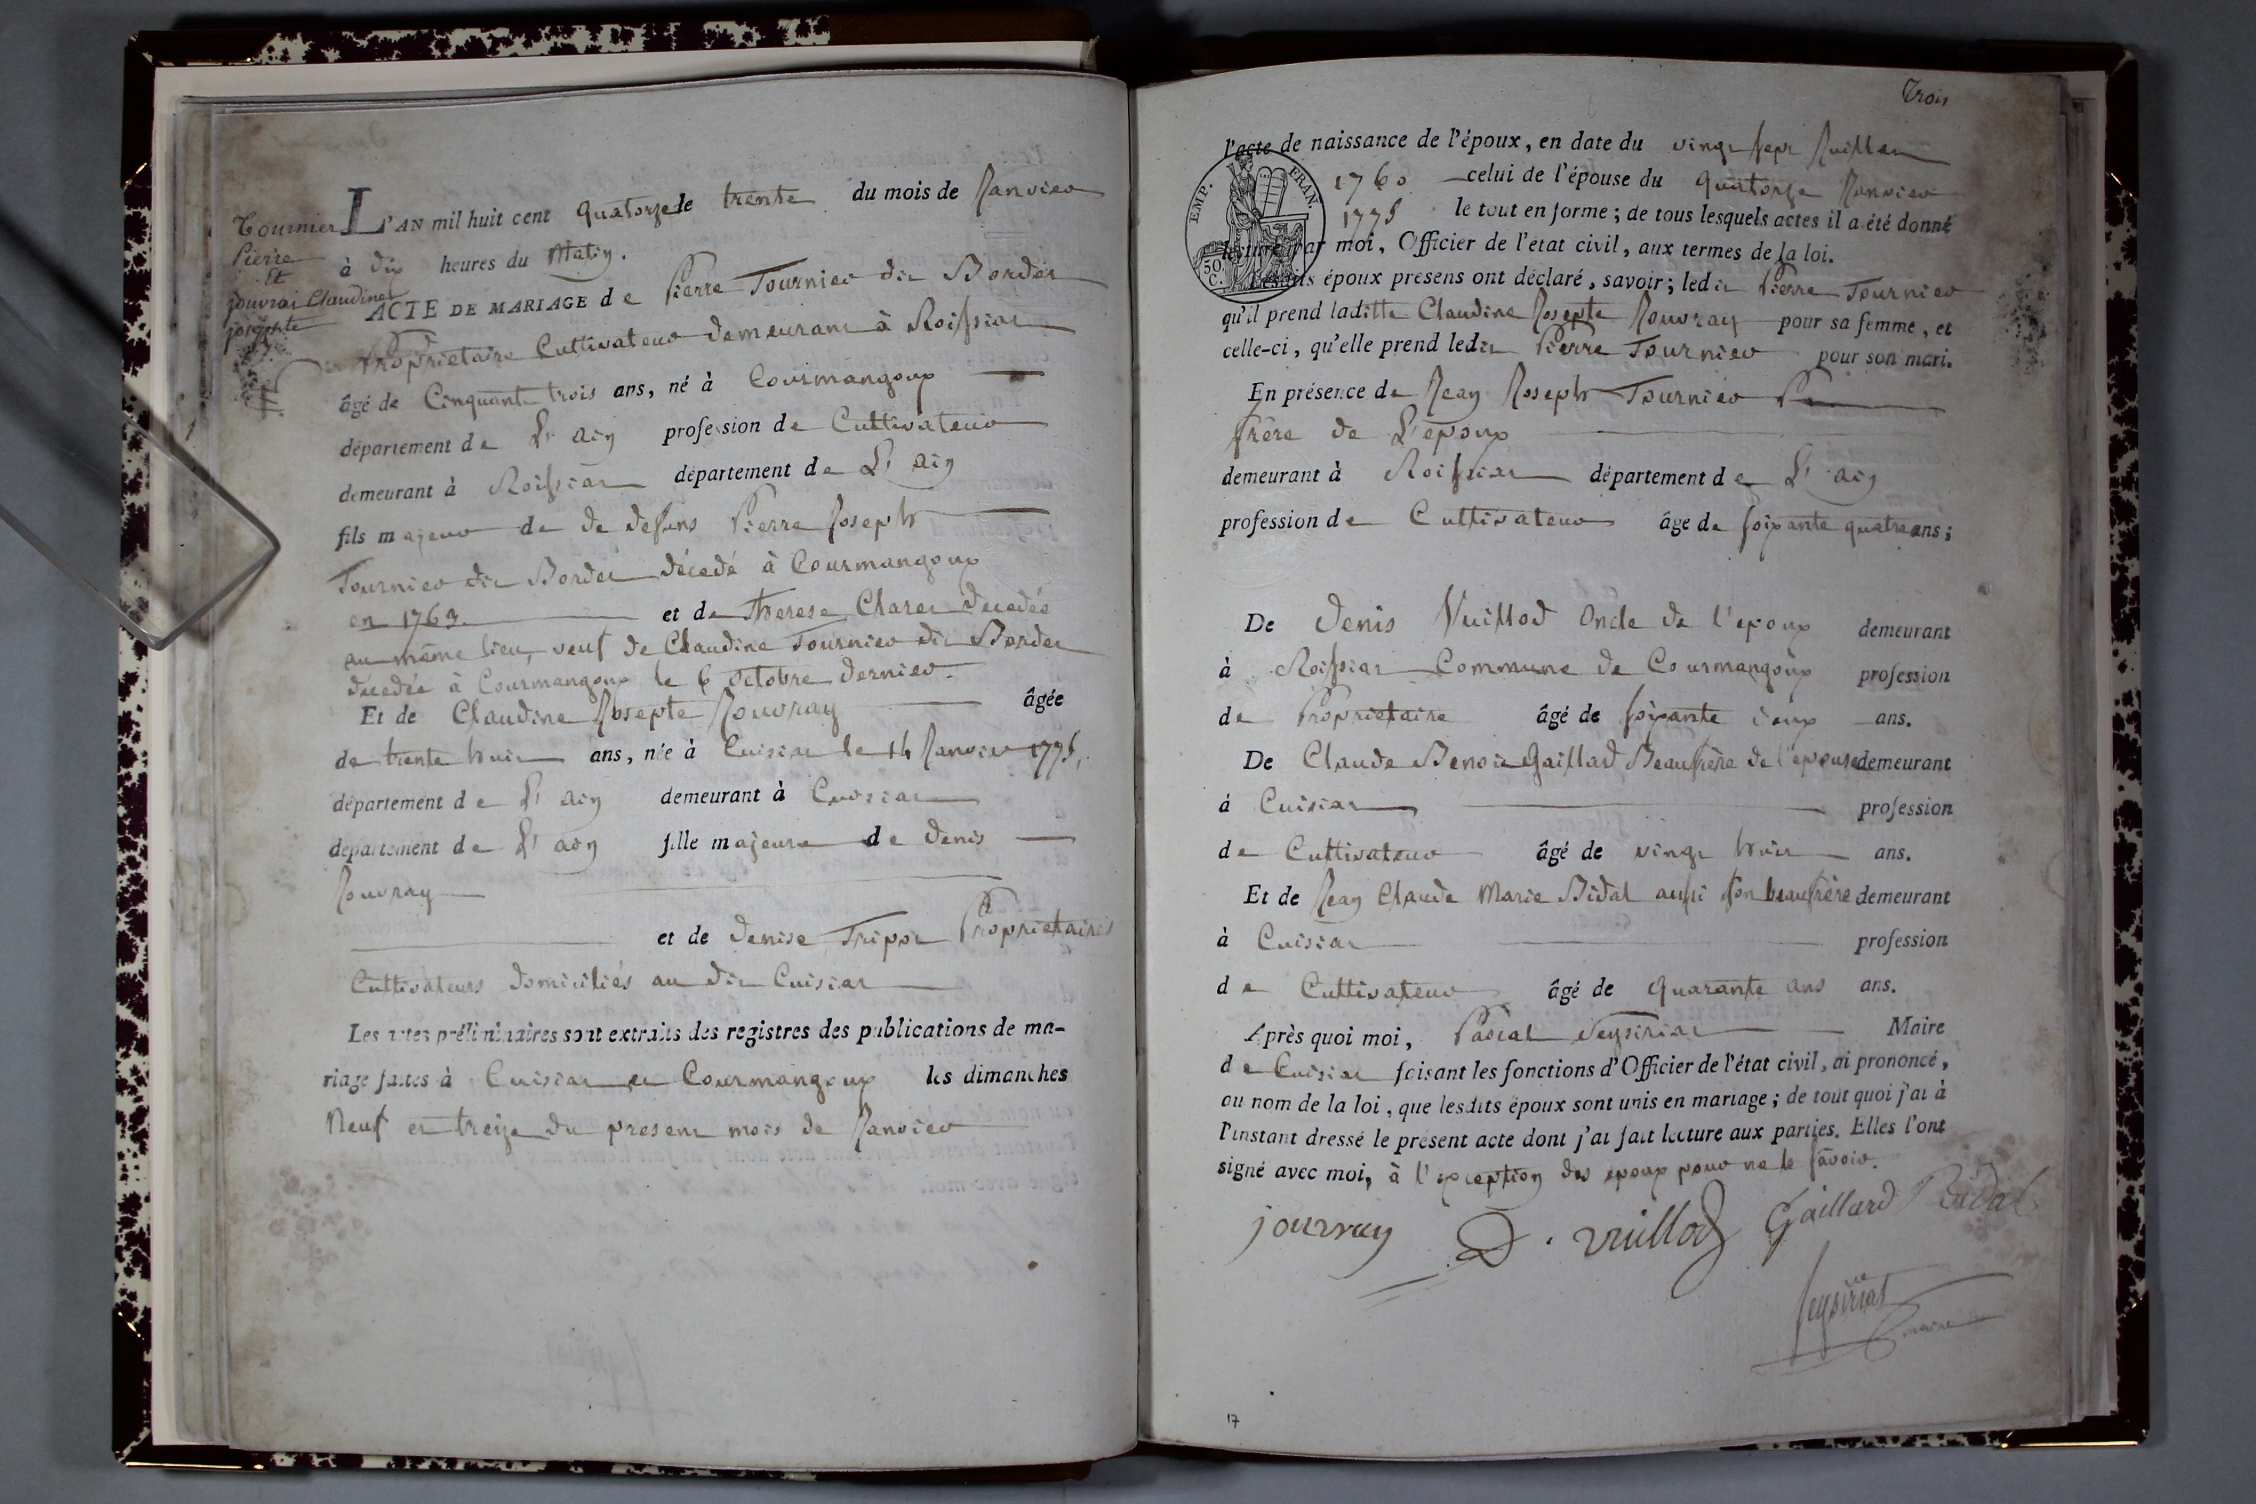 Tournier
Pierre
Et
jouvrai Claudine
josephte
L'AN mil huit cent quatorze le trente du mois de Janvier
à dix heures du Matin.
ACTE DE MARIAGE de Pierre Tournier dit Bordet
Proprietaire Cultivateur demeurant à Roissiat
âgé de Cinquante trois ans, né à Courmangoux
département de L'ain profession de Cultivateur
demeurant à Roissiat département de L'ain
fils majeur de de defunt Pierre Joseph
Tournier dit Bordet décedé à Courmangoux
en 1763 et de Therese Claret decedée
au même lieu, veuf de Claudine Tournier dit Bordet
decedée à Courmangoux le 6 octobre dernier.
Et de Claudine Josepte Jouvray âgée
de trente huit ans, née à Cuisiat le 14 Janvier 1775,
département de L'ain demeurant à Cuisiat
département de L'ain fille majeure de denis
Jouvray
et de denise Tripoz Proprietaires
Cultivateurs domiciliés au dit Cuisiat
Les actes préliminaires sont extraits des registres des publications de ma-
riage faites à Cuisiat et Courmangoux les dimanches
Neuf et treize du present mois de Janvier
Trois
l'acte de naissance de l'époux, en date du vingt sept Juillet
1760 celui de l'épouse du quatorze Janvier
1775 le tout en forme; de tous lesquels actes il a été donné
lecture par moi, Officier de l'état civil, aux termes de la loi.
Lesdits époux présens ont déclaré, savoir; ledit Pierre Tournier
qu'il prend laditte Claudine Josepte Jouvray pour sa femme, et
celle-ci, qu'elle prend ledit Pierre Tournier pour son mari.
EMP. FRAN.
50 C.
En présence de Jean Joseph Tournier
frère de L'epoux
demeurant à Roissiat département de L'ain
profession de Cultivateur âge de soixante quatre ans;
De denis Vuillod Oncle de l'epoux demeurant
à Roissiat Commune de Courmangoux profession
de Proprietaire âgé de soixante deux ans.
De Claude Benoit Gaillard Beaufrère de l'epouse demeurant
à Cuisiat profession
de Cultivateur âgé de vingt huit ans.
Et de Jean Claude Marie Bidal aussi son beaufrère demeurant
à Cuisiat profession
de Cultivateur âgé de quarante ans ans.
Après quoi moi, Pascal Seysiriat Maire
de Cuisiat faisant les fonctions d'Officier de l'état civil, ai prononcé,
au nom de la loi, que lesdits époux sont unis en mariage; de tout quoi j'ai à
l'instant dressé le présent acte dont j'ai fait lecture aux parties. Elles l'ont
signé avec moi, à l'exception des epoux pour ne le savoir.
jouvray D. vuillod Gaillard Bidal
Seysiriat
maire
17